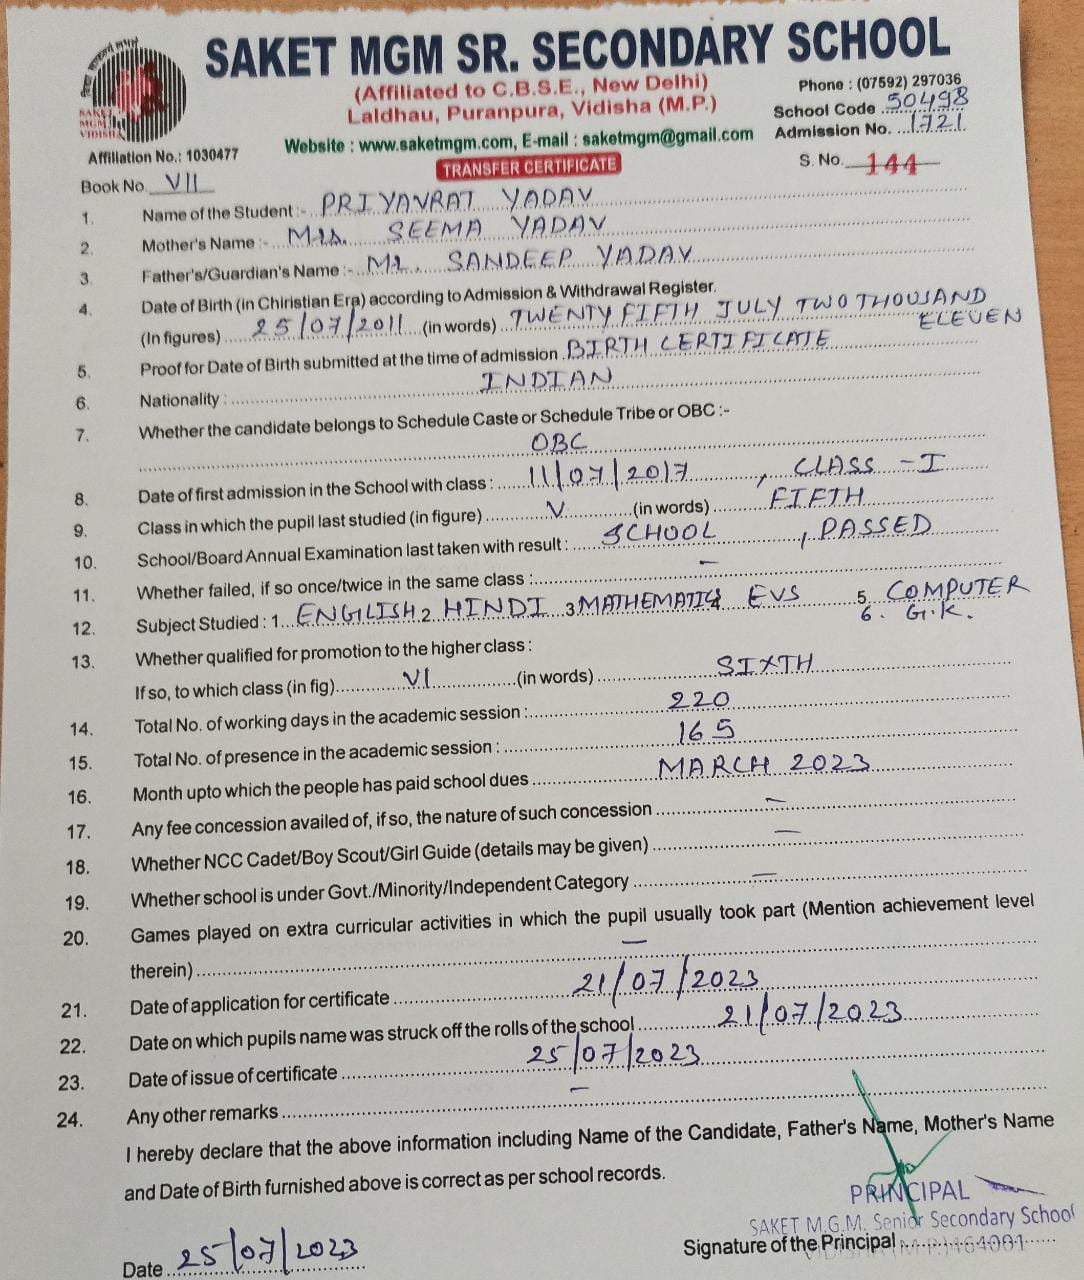 SAKET MGM SR. SECONDARY SCHOOL
(Affiliated to C.B.S.E., New Delhi)
Laldhau, Puranpura, Vidisha (M.P.)
Phone : (07592) 297036
School Code 50498
Admission No. 1721
SAKET
MGM
VIDISHA
Website : www.saketmgm.com, E-mail : saketmgm@gmail.com
Affiliation No.: 1030477
TRANSFER CERTIFICATE
S. No. 144
Book No. VII
1. Name of the Student :- PRIYAVRAT YADAV
2. Mother's Name :- Mrs. SEEMA YADAV
3. Father's/Guardian's Name :- Mr. SANDEEP YADAV
4. Date of Birth (in Chiristian Era) according to Admission & Withdrawal Register.
(In figures) 25/07/2011 (in words) TWENTY FIFTH JULY TWO THOUSAND
ELEVEN
5. Proof for Date of Birth submitted at the time of admission BIRTH CERTIFICATE
6. Nationality : INDIAN
7. Whether the candidate belongs to Schedule Caste or Schedule Tribe or OBC :-
OBC
8. Date of first admission in the School with class : 11/07/2017, CLASS - I
9. Class in which the pupil last studied (in figure) V (in words) FIFTH
10. School/Board Annual Examination last taken with result : SCHOOL, PASSED
11. Whether failed, if so once/twice in the same class : –
12. Subject Studied : 1 ENGLISH 2 HINDI 3 MATHEMATICS 4 EVS 5 COMPUTER
6. G.K.
13. Whether qualified for promotion to the higher class :
If so, to which class (in fig) VI (in words) SIXTH
14. Total No. of working days in the academic session : 220
15. Total No. of presence in the academic session : 165
16. Month upto which the people has paid school dues MARCH 2023
17. Any fee concession availed of, if so, the nature of such concession –
18. Whether NCC Cadet/Boy Scout/Girl Guide (details may be given) –
19. Whether school is under Govt./Minority/Independent Category –
20. Games played on extra curricular activities in which the pupil usually took part (Mention achievement level
therein) –
21. Date of application for certificate 21/07/2023
22. Date on which pupils name was struck off the rolls of the school 21/07/2023
23. Date of issue of certificate 25/07/2023
24. Any other remarks –
I hereby declare that the above information including Name of the Candidate, Father's Name, Mother's Name
and Date of Birth furnished above is correct as per school records.
PRINCIPAL
SAKET M.G.M. Senior Secondary School
VIDISHA (M.P.) 464001
Date 25/07/2023
Signature of the Principal